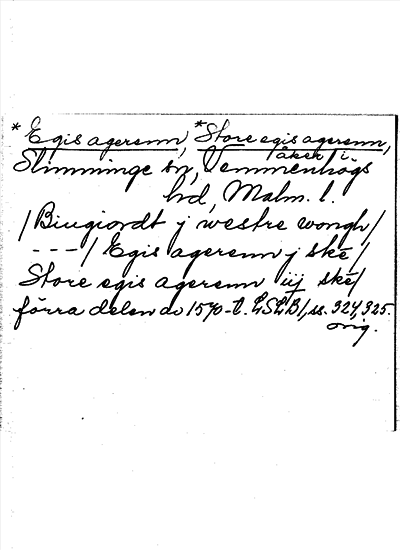 * Egis agerenn, * Store egis agerenn,
åker i
Slimminge sn, Vemmenhögs
hd, Malm. l.
/ Biugiordt j westre wongh /
- - - / Egis agerenn j skē /
Store egis agerenn iij skē /
förra delen av 1570-t. LSLB/, ss. 324, 325.
orig.